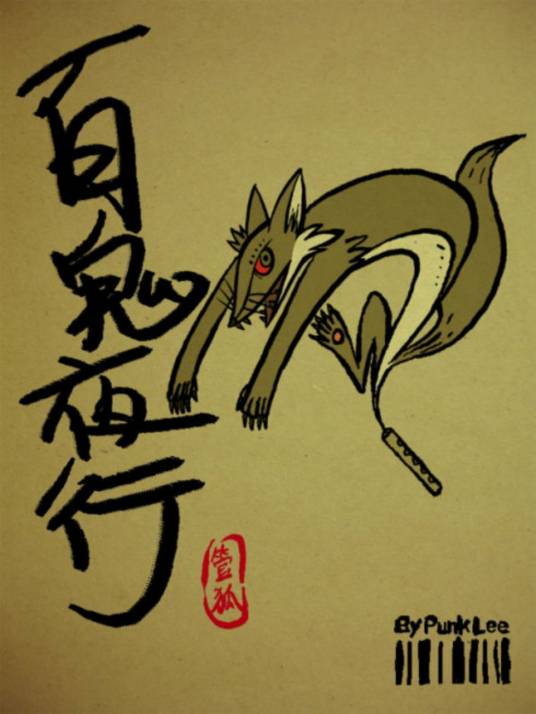 百鬼夜行
管狐
By Punk Lee